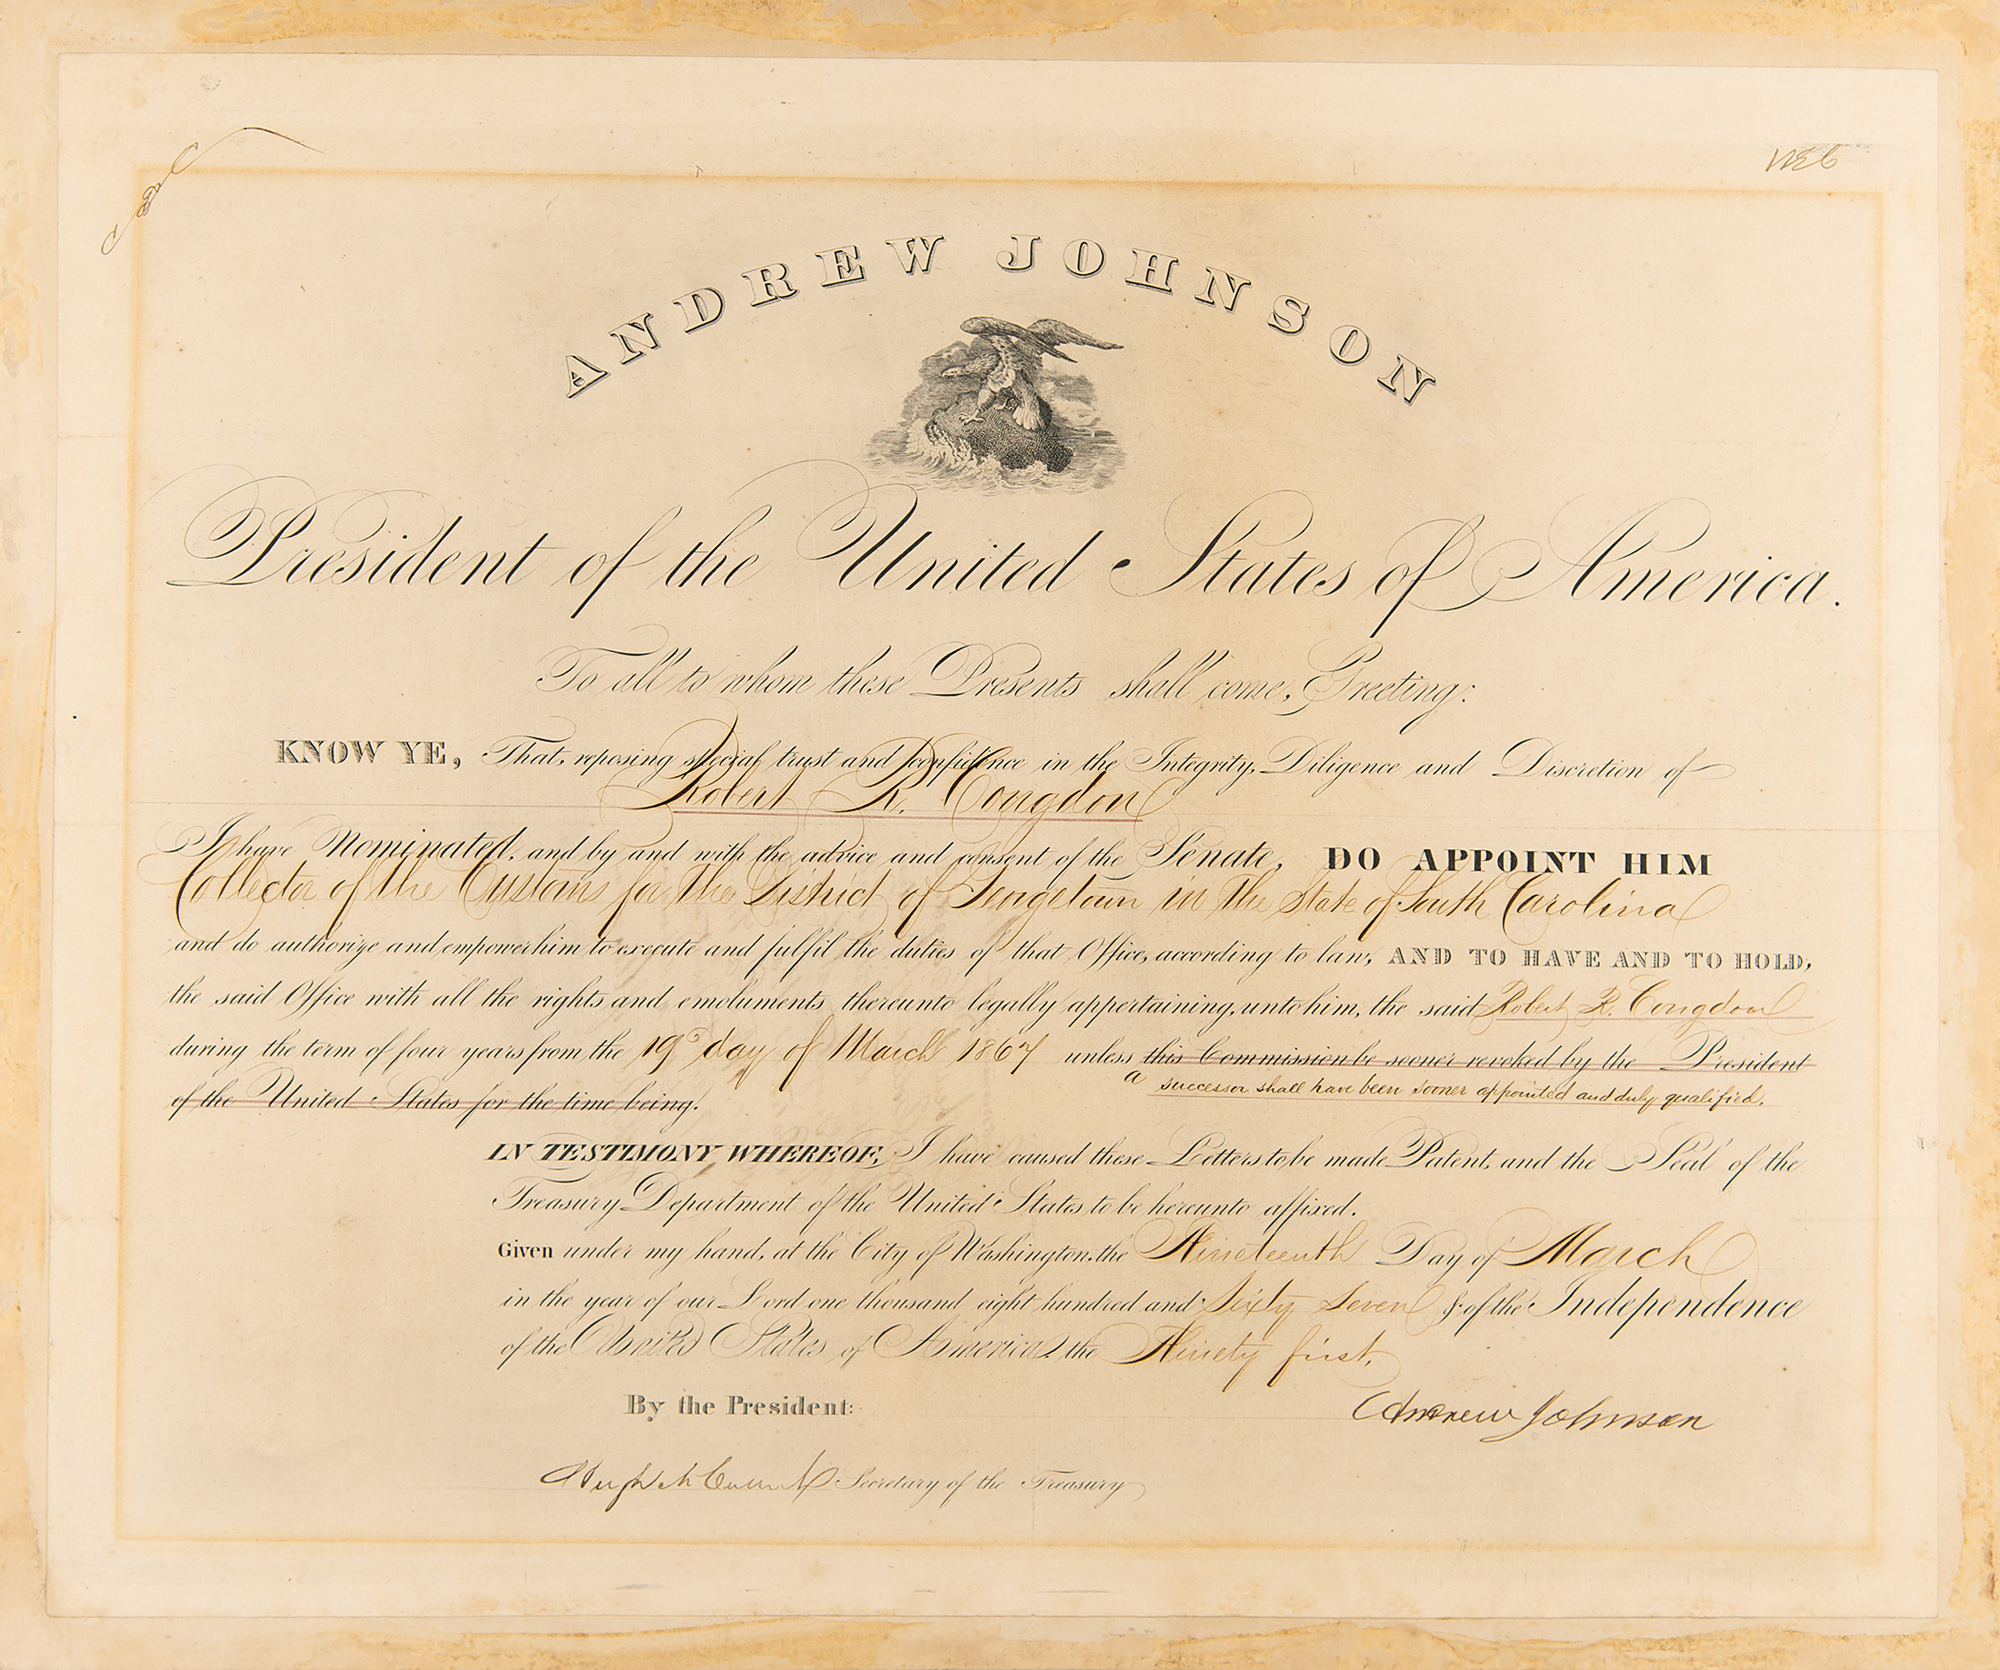 WEC
ANDREW JOHNSON
President of the United States of America.
To all to whom these Presents shall come, Greeting:
KNOW YE, That, reposing special trust and confidence in the Integrity, Diligence and Discretion of
Robert R. Congdon
I have Nominated, and by and with the advice and consent of the Senate, DO APPOINT HIM
Collector of the Customs for the District of Georgetown in the State of South Carolina
and do authorize and empower him to execute and fulfil the duties of that Office, according to law; AND TO HAVE AND TO HOLD,
the said Office with all the rights and emoluments thereunto legally appertaining, unto him, the said Robert R. Congdon
during the term of four years from the 19th day of March 1867 unless this Commission be sooner revoked by the President
a successor shall have been sooner appointed and duly qualified.
of the United States for the time being.
IN TESTIMONY WHEREOF, I have caused these Letters to be made Patent, and the Seal of the
Treasury Department of the United States to be hereunto affixed.
Given under my hand, at the City of Washington, the Nineteenth Day of March
in the year of our Lord one thousand eight hundred and Sixty Seven & of the Independence
of the United States of America, the Ninety first.
By the President:
Andrew Johnson
Hugh McCulloch Secretary of the Treasury